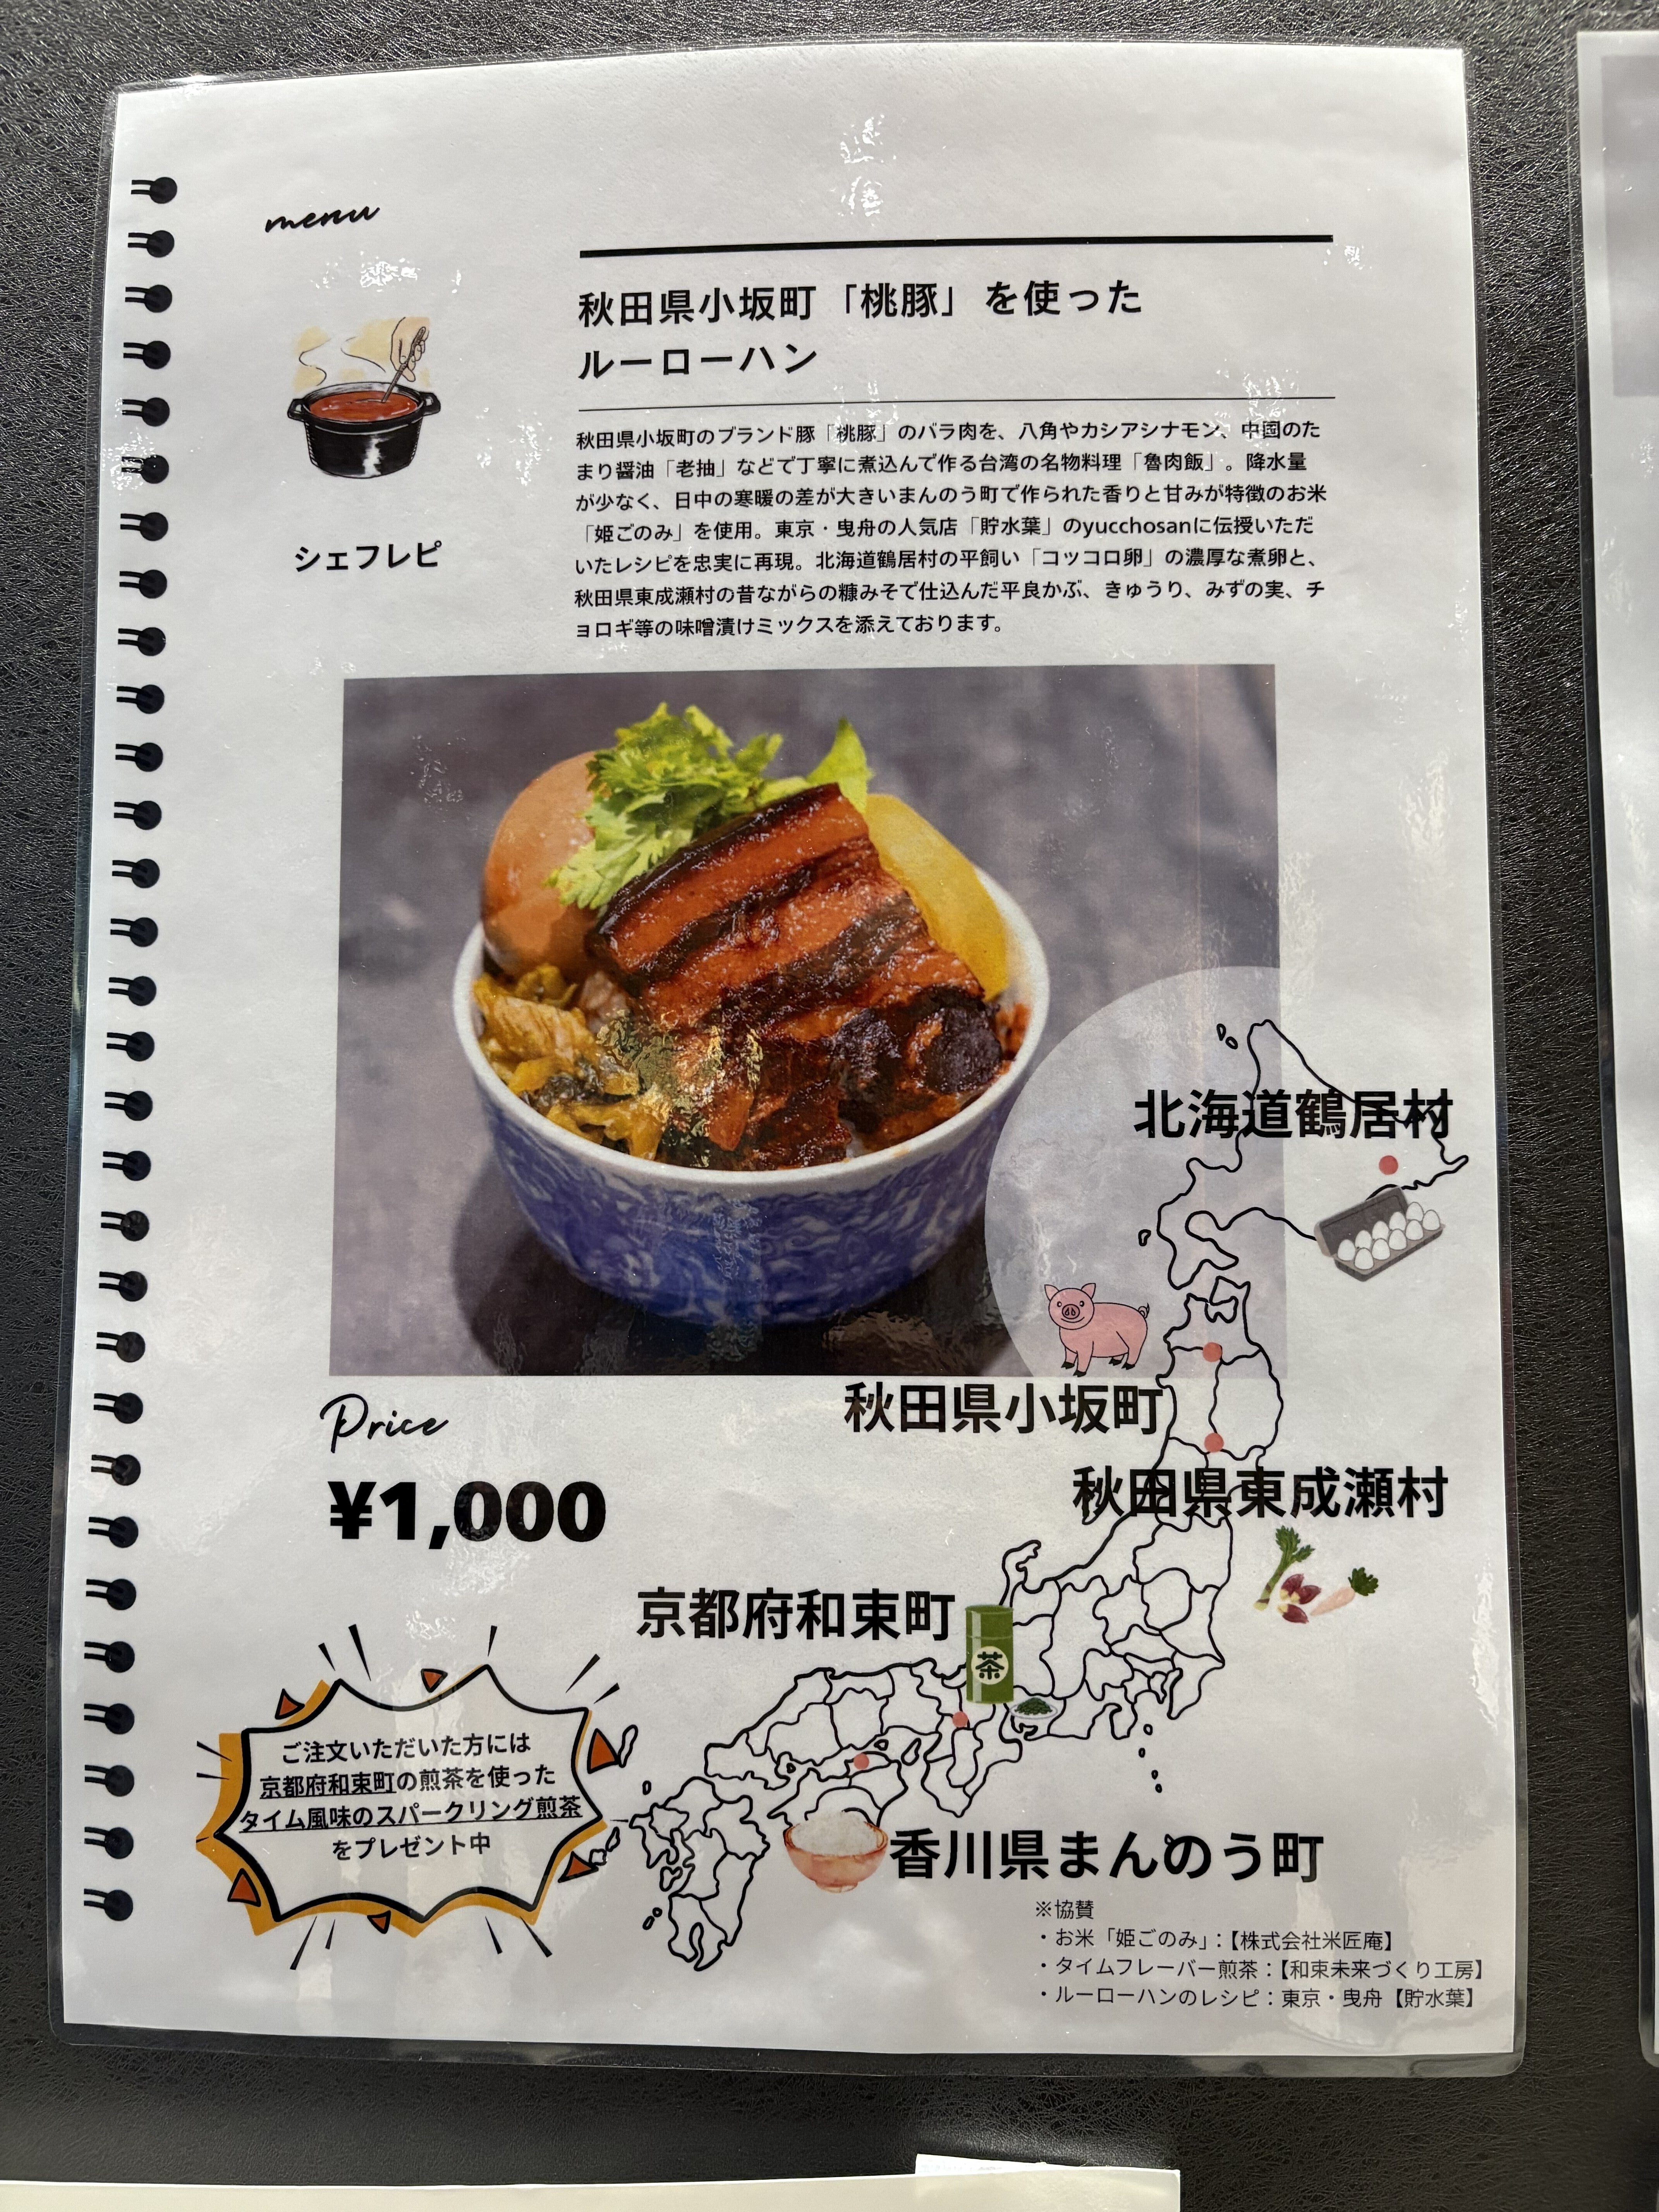 menu
秋田県小坂町「桃豚」を使った
ルーローハン
シェフレピ
秋田県小坂町のブランド豚「桃豚」のバラ肉を、八角やカシアシナモン、中国のた
まり醤油「老抽」などで丁寧に煮込んで作る台湾の名物料理「魯肉飯」。降水量
が少なく、日中の寒暖の差が大きいまんのう町で作られた香りと甘みが特徴のお米
「姫ごのみ」を使用。東京・曳舟の人気店「貯水葉」のyucchosanに伝授いただ
いたレシピを忠実に再現。北海道鶴居村の平飼い「コッコロ卵」の濃厚な煮卵と、
秋田県東成瀬村の昔ながらの糠みそで仕込んだ平良かぶ、きゅうり、みずの実、チ
ョロギ等の味噌漬けミックスを添えております。
北海道鶴居村
秋田県小坂町
秋田県東成瀬村
Price
¥1,000
京都府和束町
茶
ご注文いただいた方には
京都府和束町の煎茶を使った
タイム風味のスパークリング煎茶
をプレゼント中
香川県まんのう町
※協賛
・お米「姫ごのみ」：【株式会社米匠庵】
・タイムフレーバー煎茶：【和束未来づくり工房】
・ルーローハンのレシピ：東京・曳舟【貯水葉】